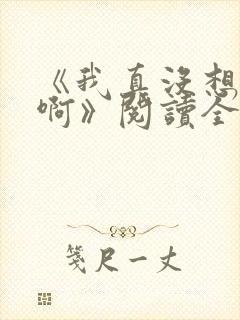 《我真沒想
啊》閱讀全
箋尺一丈